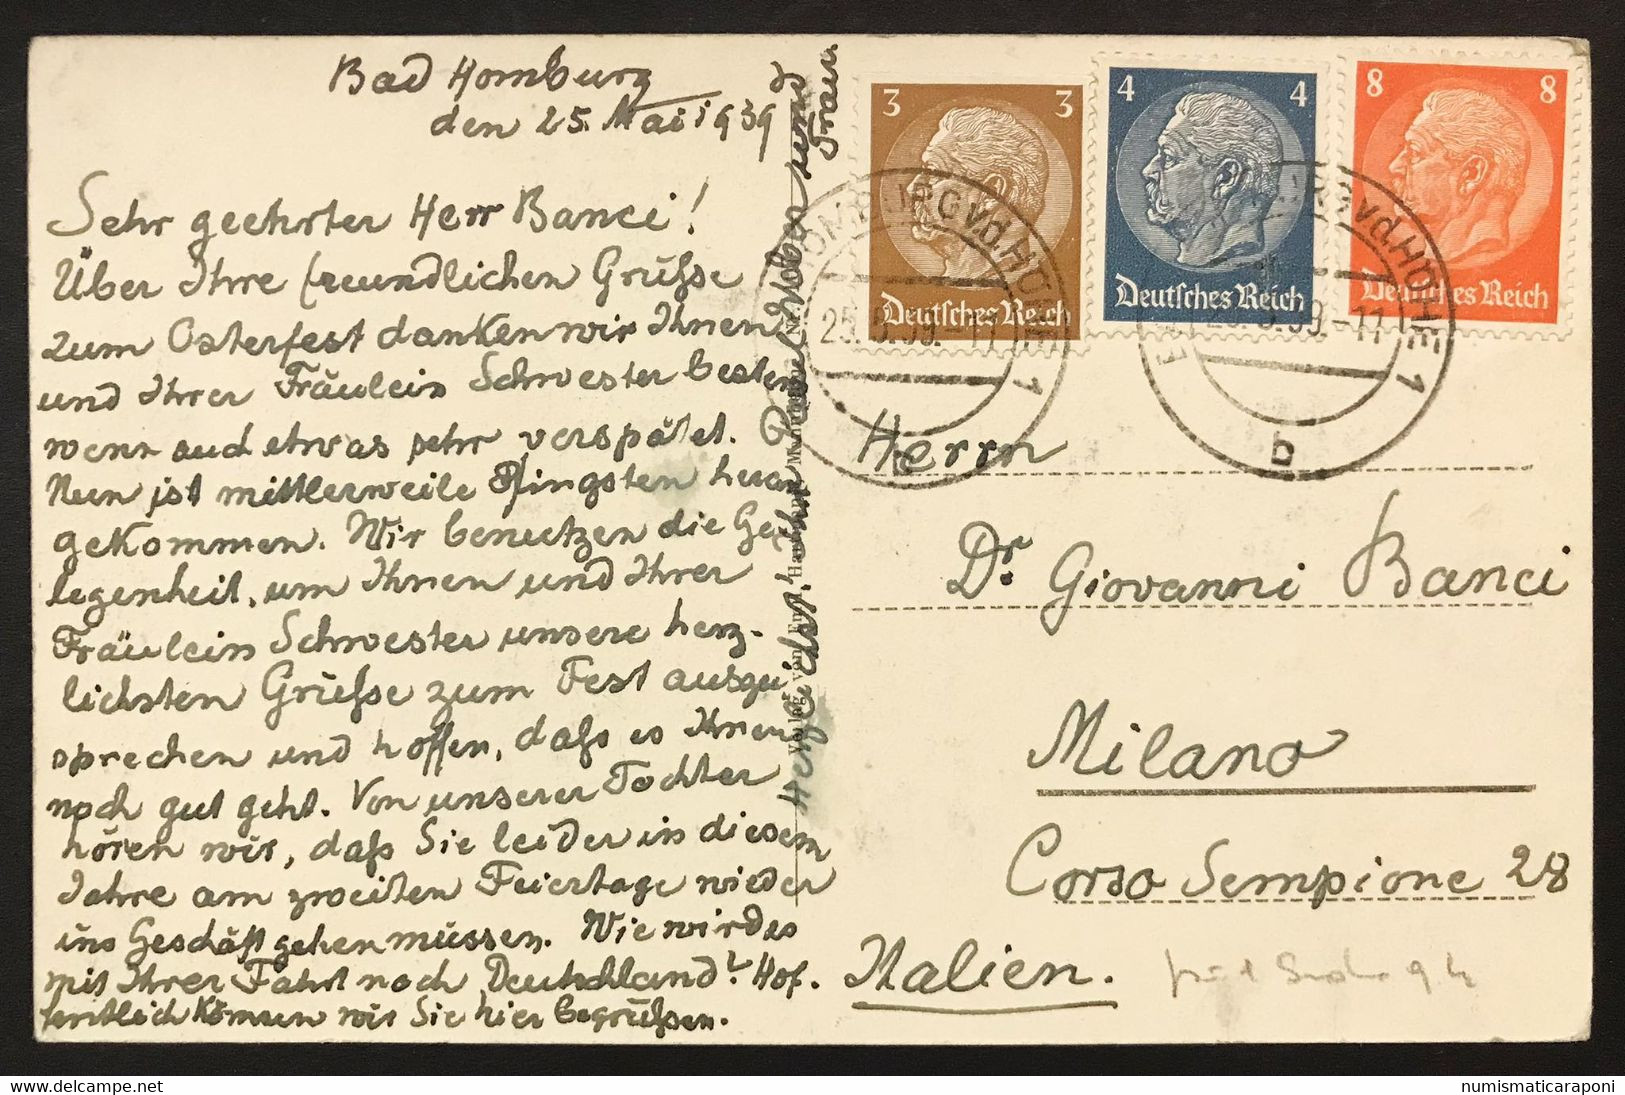 Bad Homburg
den 25. Mai 1939
Sehr geehrter Herr Banci!
Über Ihre freundlichen Grüsse
zum Osterfest danken wir Ihnen
und Ihrer Fräulein Schwester bestens
wenn auch etwas sehr verspätet.
Nun ist mittlerweile Pfingsten heran
gekommen. Wir benutzen die Ge
legenheit, um Ihnen und Ihrer
Fräulein Schwester unsere herz-
lichsten Grüsse zum Fest auszu
sprechen und hoffen, daß es Ihnen
noch gut geht. Von unserer Tochter
hören wir, daß Sie leider in diesem
Jahre am zweiten Feiertage wieder
ins Geschäft gehen müssen. Wie wird es
mit Ihrer Fahrt nach Deutschland? Hof.
fentlich können wir Sie hier begrüßen.
Herzlichst! Ihr und
Frau
3 3
Deutsches Reich
4 4
Deutsches Reich
8 8
Deutsches Reich
HOMBURG v.d. HÖHE 1
25.5.39.-11
b
Herrn
Dr. Giovanni Banci
Milano
Corso Sempione 28
Italien.
numismaticaraponi